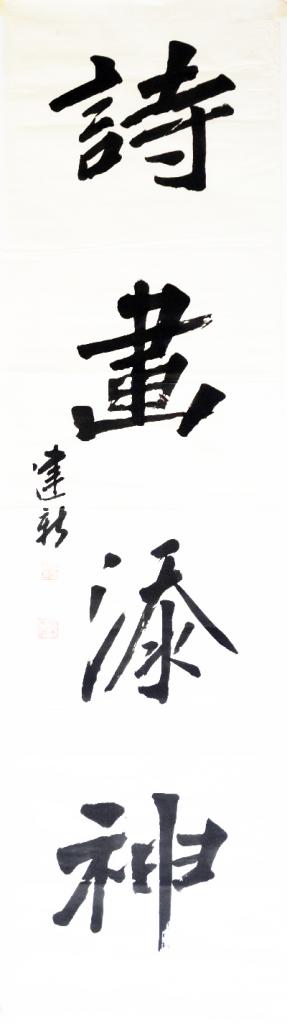 詩畫添神
建新